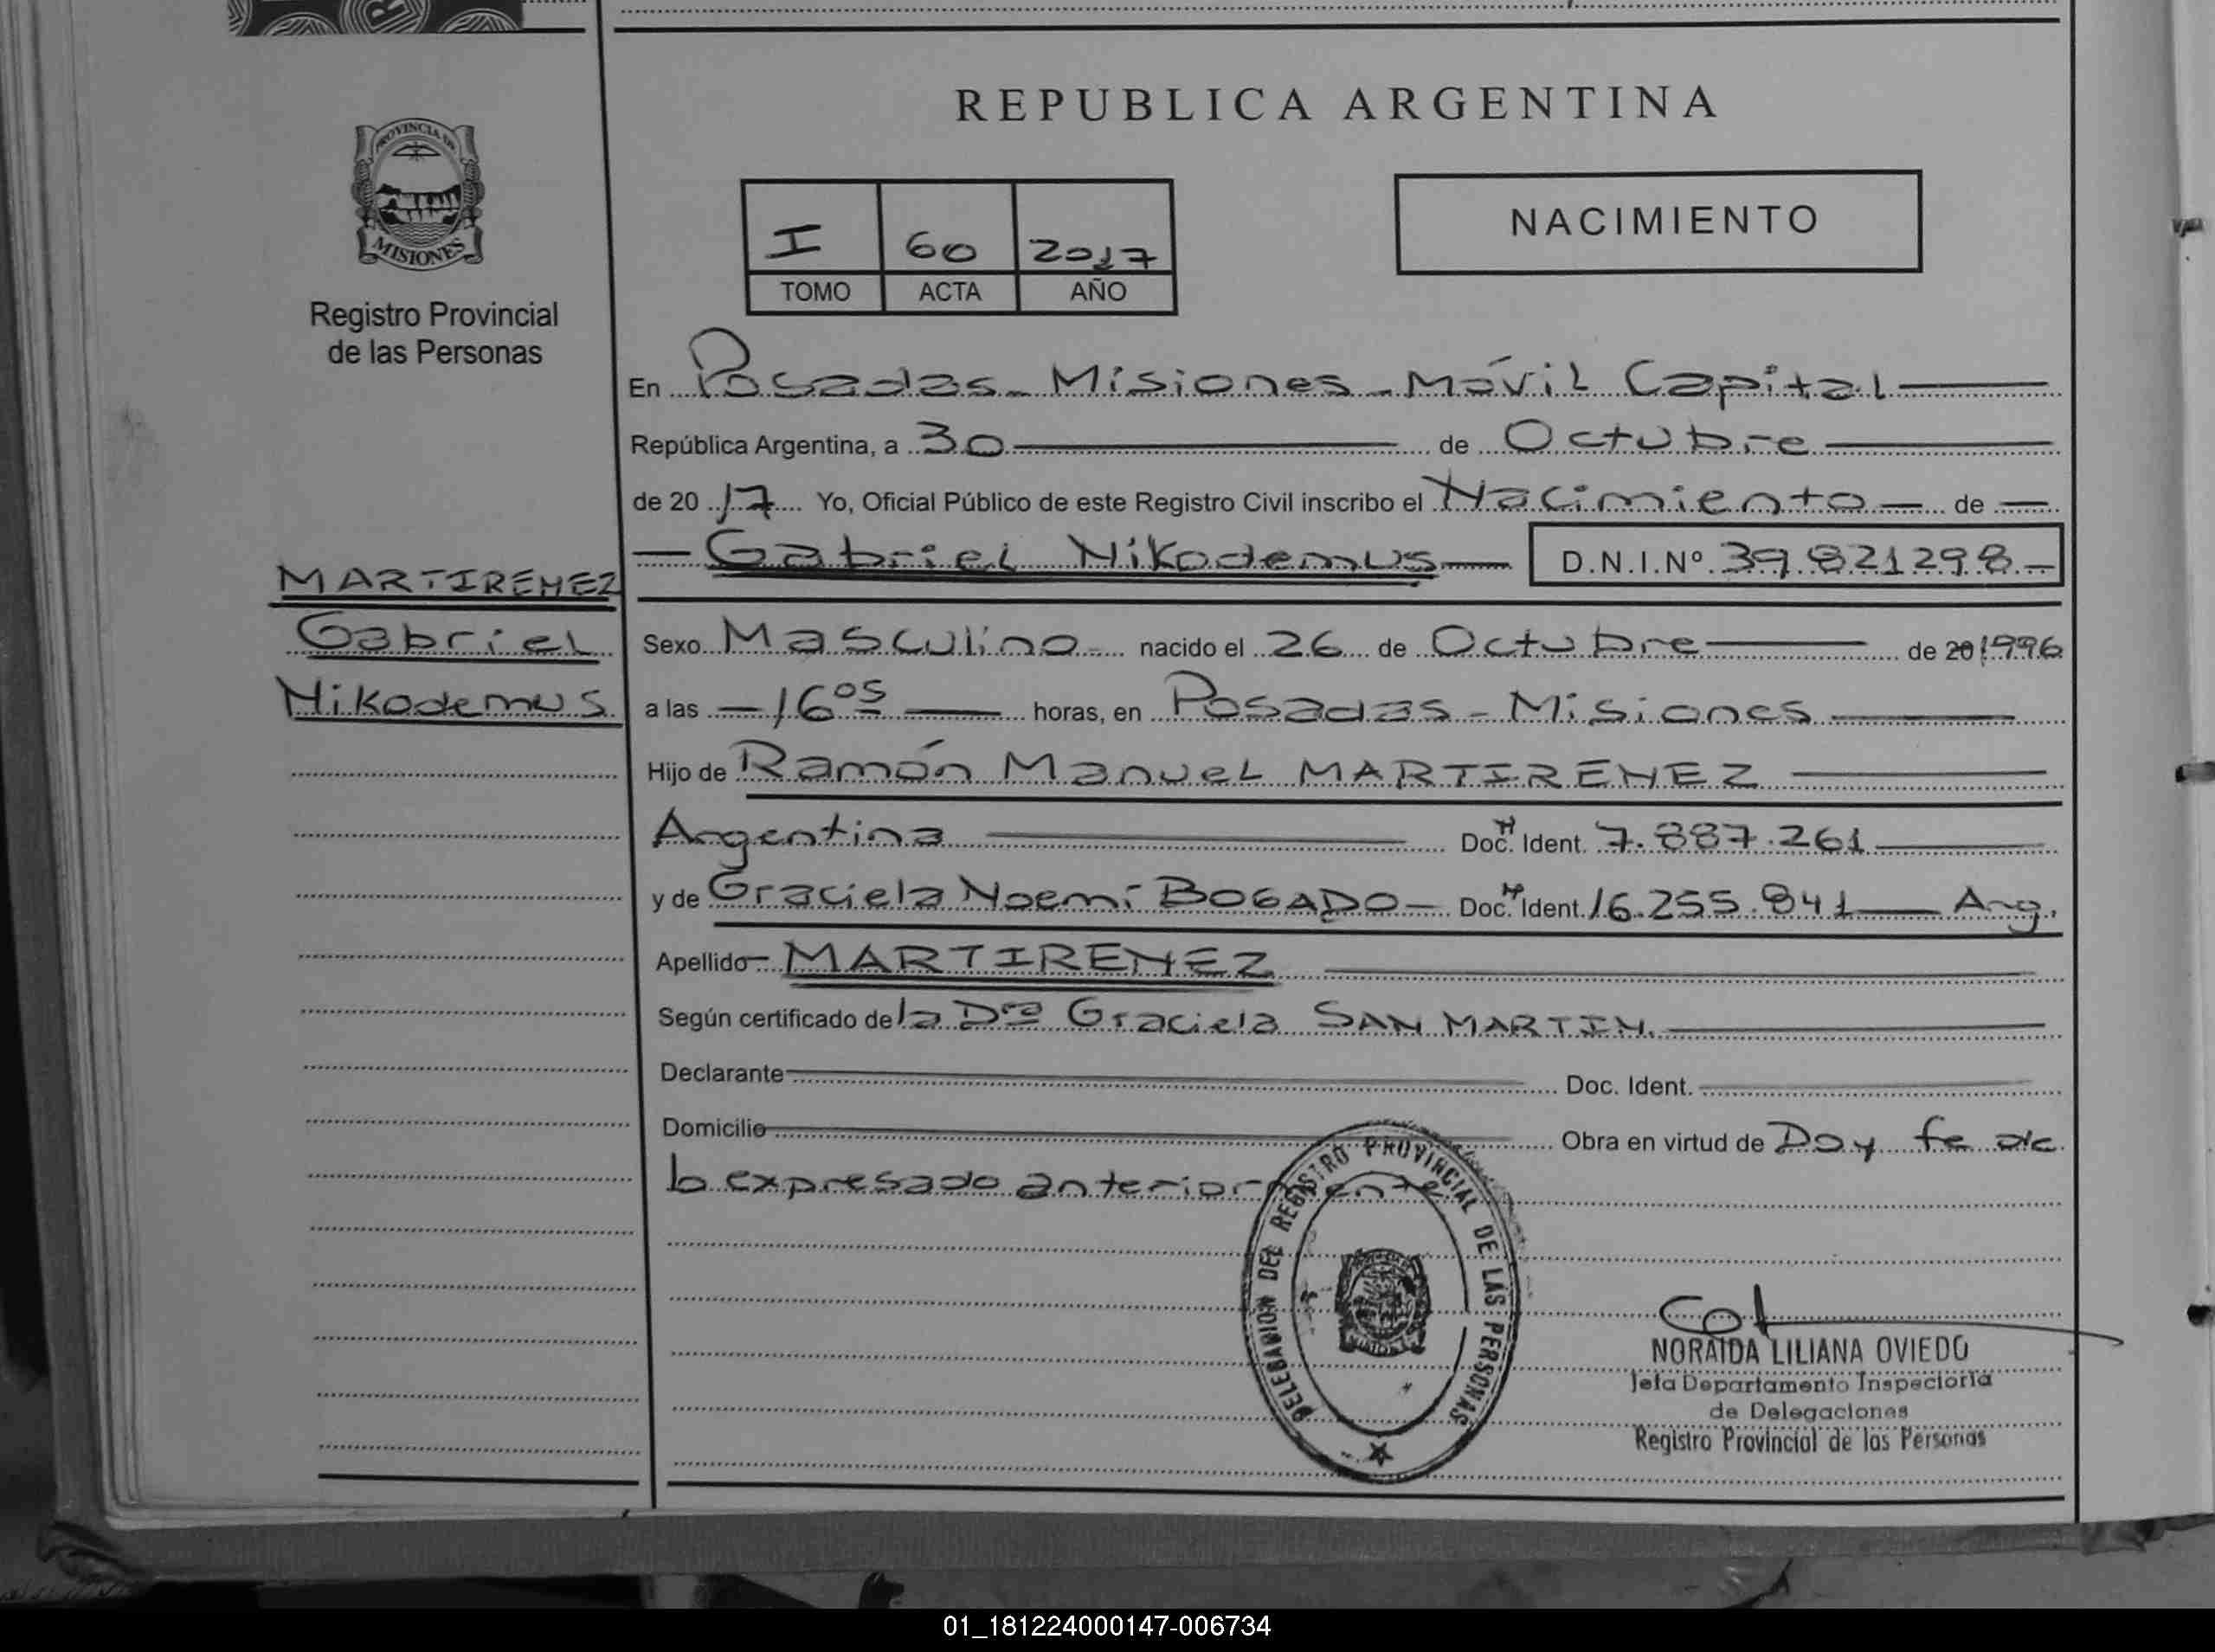 PROVINCIA DE
MISIONES
Registro Provincial
de las Personas
MARTIRENEZ
Gabriel
Nikodemus
REPUBLICA ARGENTINA
I 60 2017
TOMO ACTA AÑO
NACIMIENTO
En Posadas - Misiones - Móvil Capital
República Argentina, a 30 de Octubre
de 20 17 Yo, Oficial Público de este Registro Civil inscribo el Nacimiento de
Gabriel Nikodemus D.N.I.Nº 39.821298
Sexo Masculino nacido el 26 de Octubre de 20 1996
a las 16 os horas, en Posadas - Misiones
Hijo de Ramón Manuel MARTIRENEZ
Argentina Doc. Ident. 7.887.261
y de Graciela Noemí BOGADO Doc. Ident. 16.255.841 Arg.
Apellido MARTIRENEZ
Según certificado de la Dra Graciela SAN MARTIN.
Declarante Doc. Ident.
Domicilio Obra en virtud de Doy fe de
lo expresado anteriormente
DELEGACION DEL REGISTRO PROVINCIAL DE LAS PERSONAS
NORAIDA LILIANA OVIEDO
Jefa Departamento Inspectoría
de Delegaciones
Registro Provincial de las Personas
01_181224000147-006734